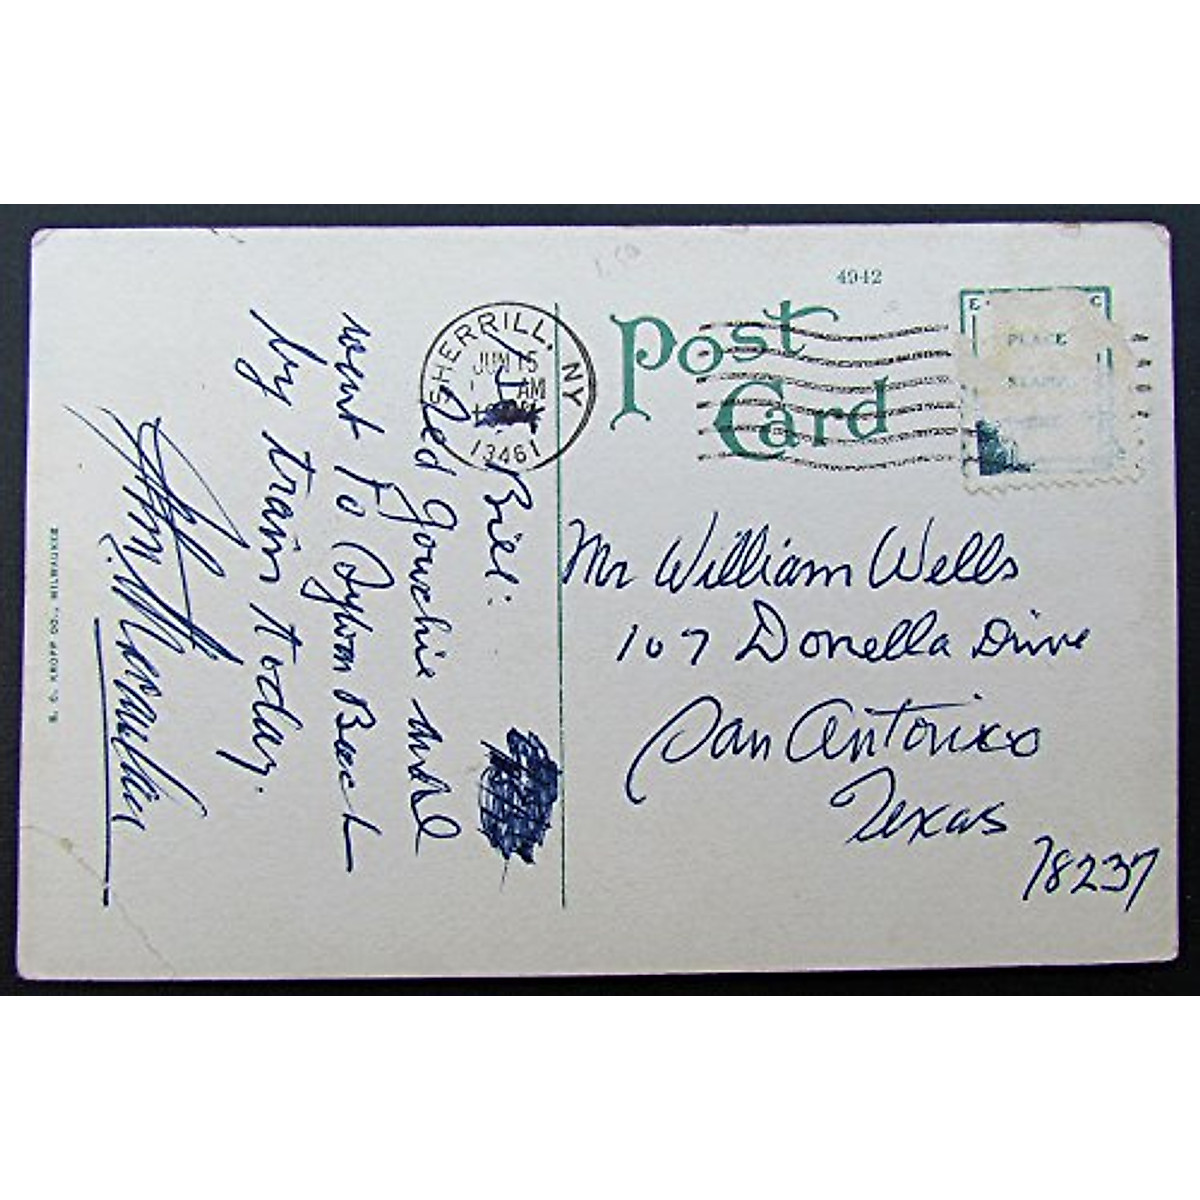 4942
Post
Card
E C
PLACE
SHERRILL. NY
JUN 15
AM
13461
Mr William Wells
107 Donella Drive
San Antonio
Texas
78237
Bill:
Red
went to Beach
by train today.
E. C. KROPP CO., MILWAUKEE